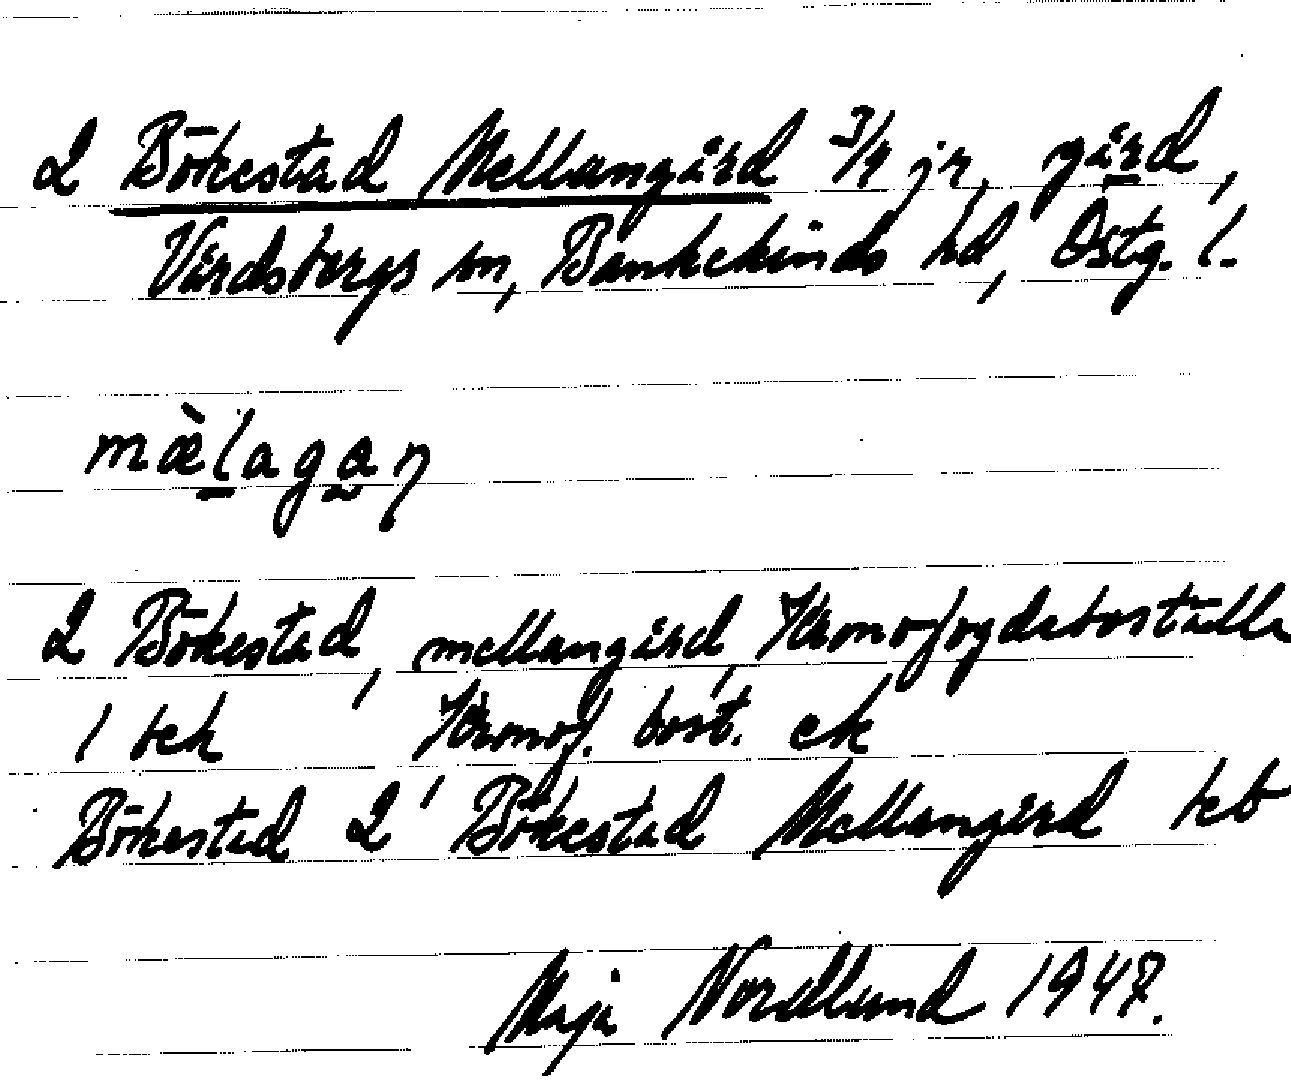 2 Bökestad Mellangård 3/4 jr, gård,
Vårdsbergs sn, Bankekinds hd, Östg. l.
mæ̀lagan
2 Bökestad, mellangård, Kronofogdeboställe
1 bek Kronof. bost. ek
Bökestad 2' Bökestad Mellangård
Maja Nordlund 1947.